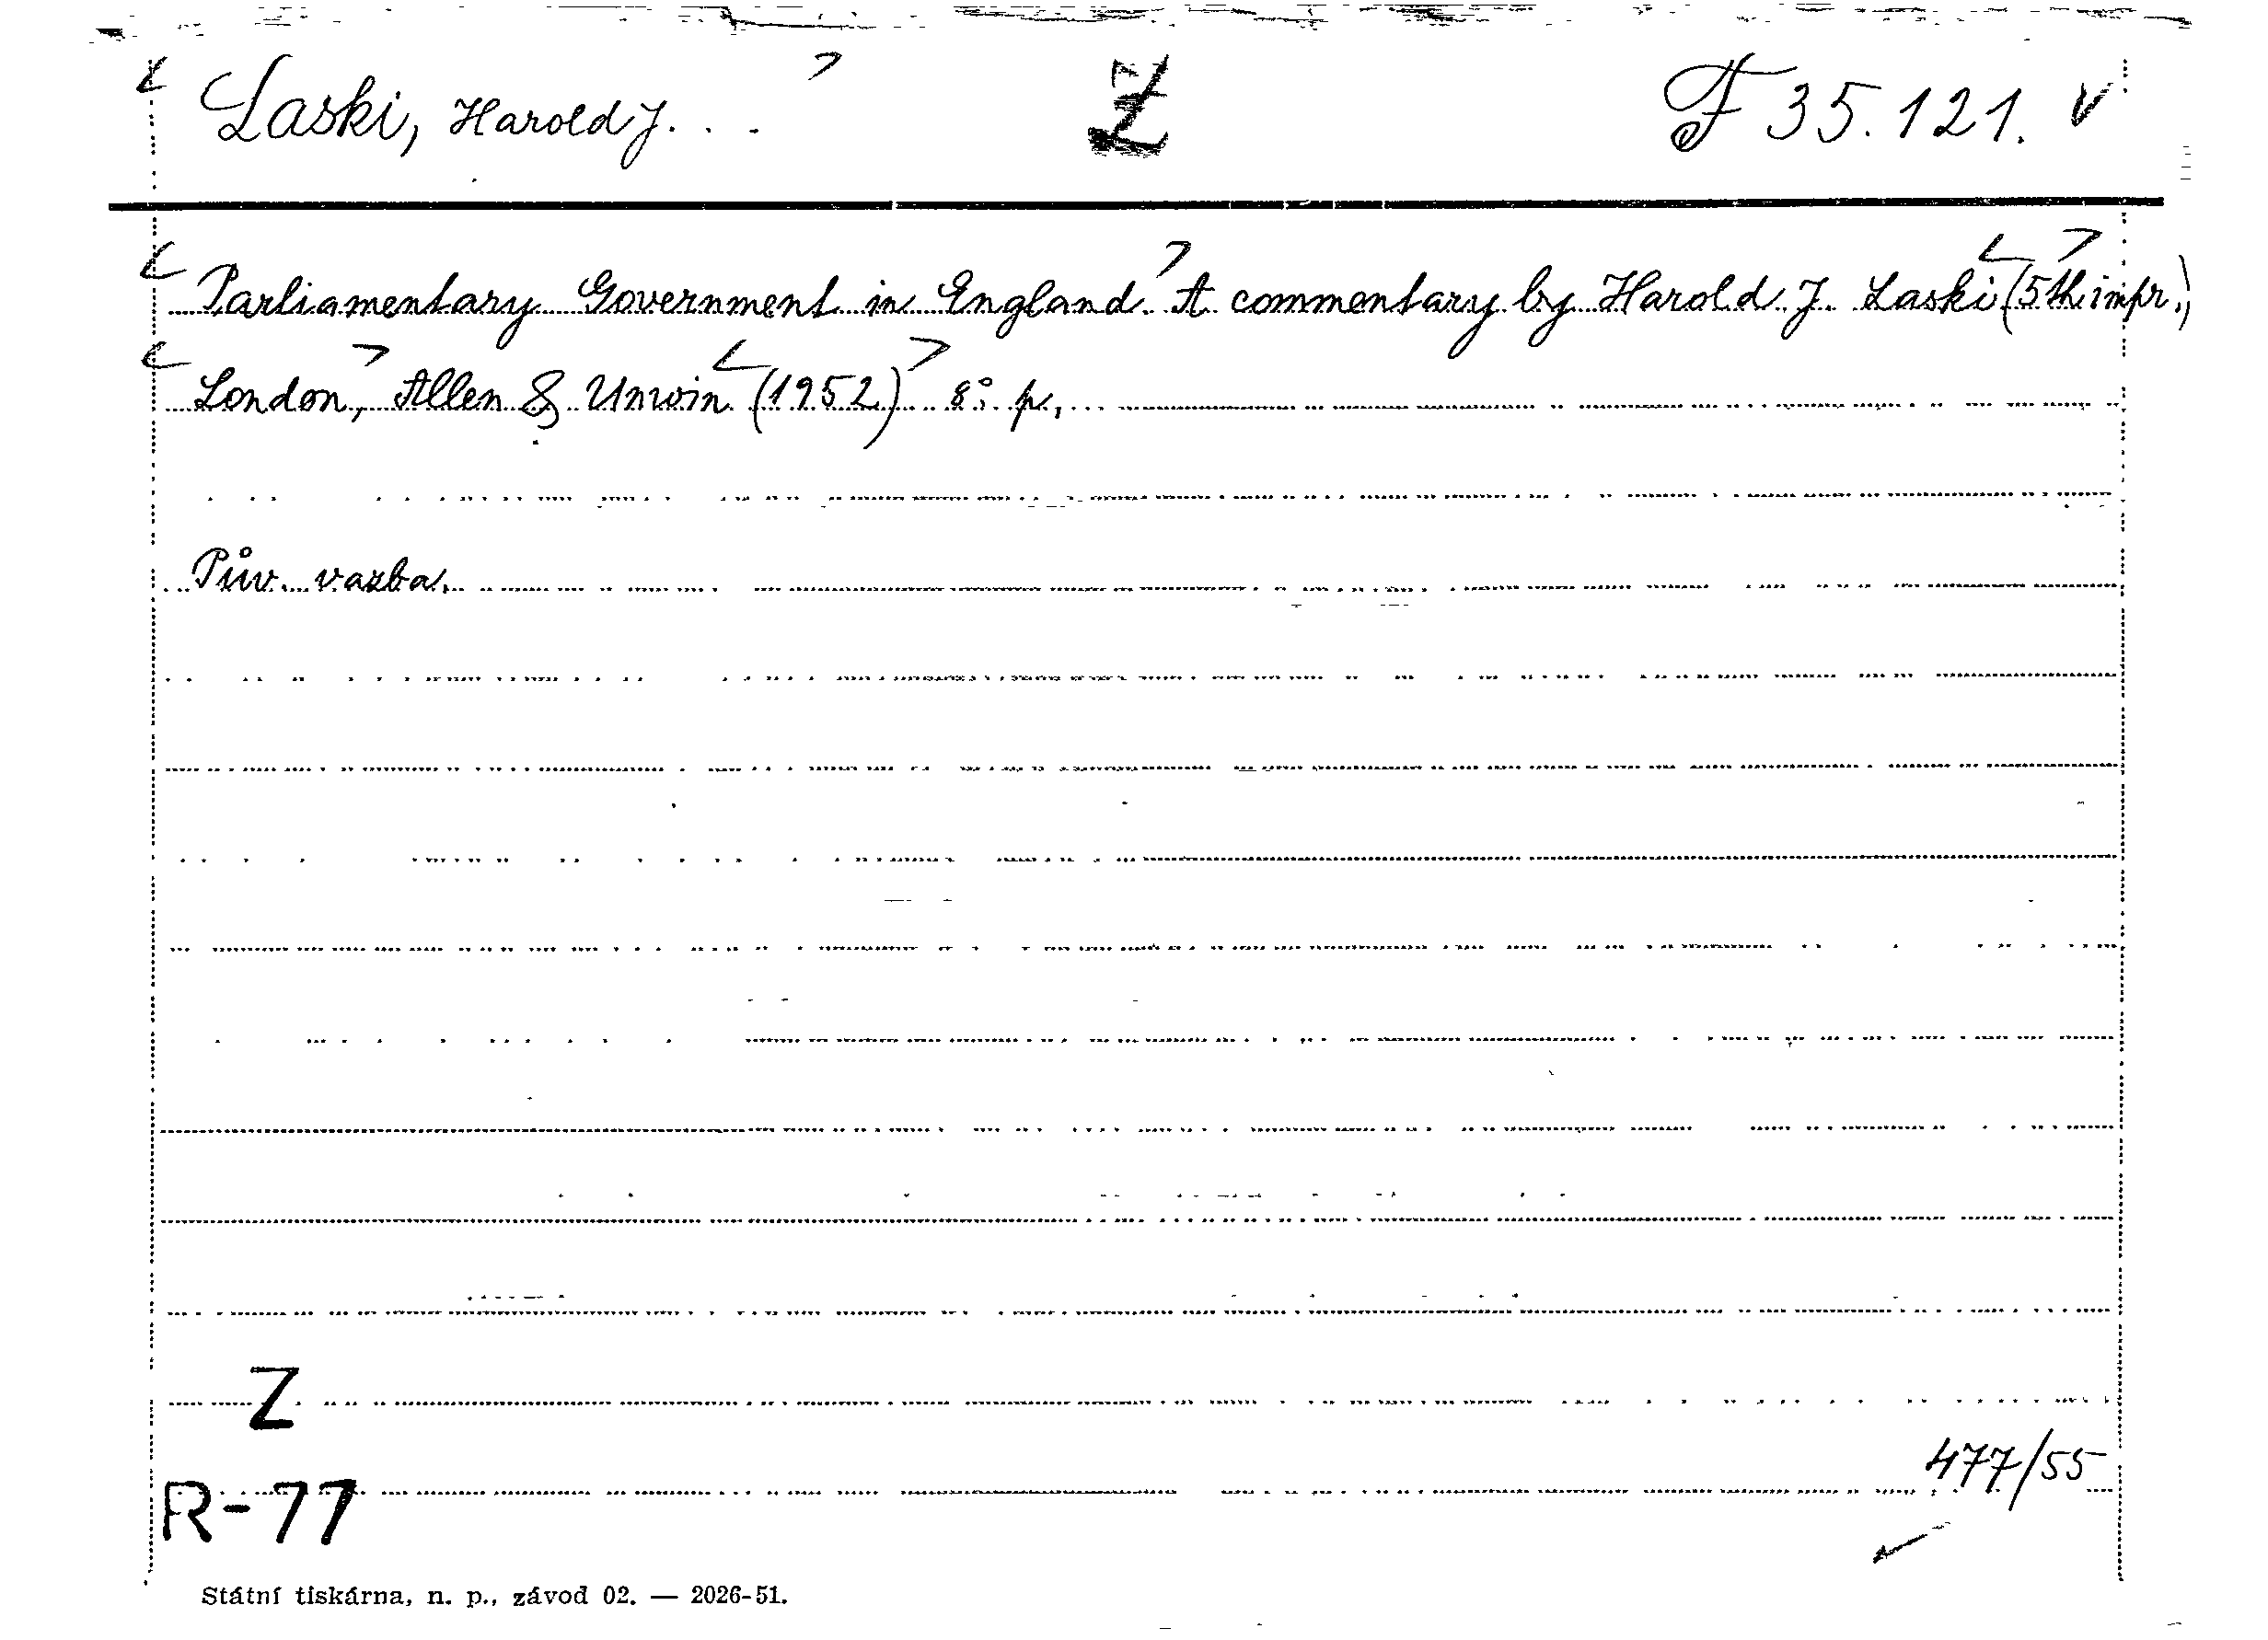 Laski, Harold J. . . Z F 35.121. v
Parliamentary Government in England. A commentary by Harold J. Laski (5th impr.)
London, Allen & Unwin (1952) 8° p.
Pův. vazba.
Z
477/55
R-77
Státní tiskárna, n. p., závod 02. — 2026-51.